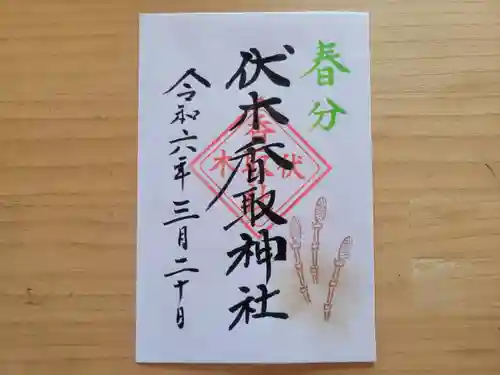 春分
伏木香取神社
令和六年三月二十日